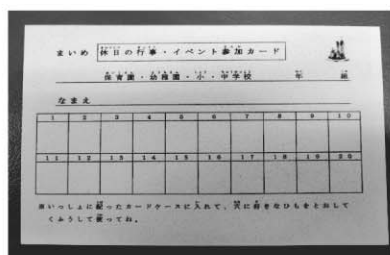 まいめ 休日の行事・イベント参加カード
保育園・幼稚園・小・中学校 年 組
なまえ
1 2 3 4 5 6 7 8 9 10
11 12 13 14 15 16 17 18 19 20
※いっしょに配ったカードケースに入れて、穴に好きなひもをとおして
くふうして使ってね。